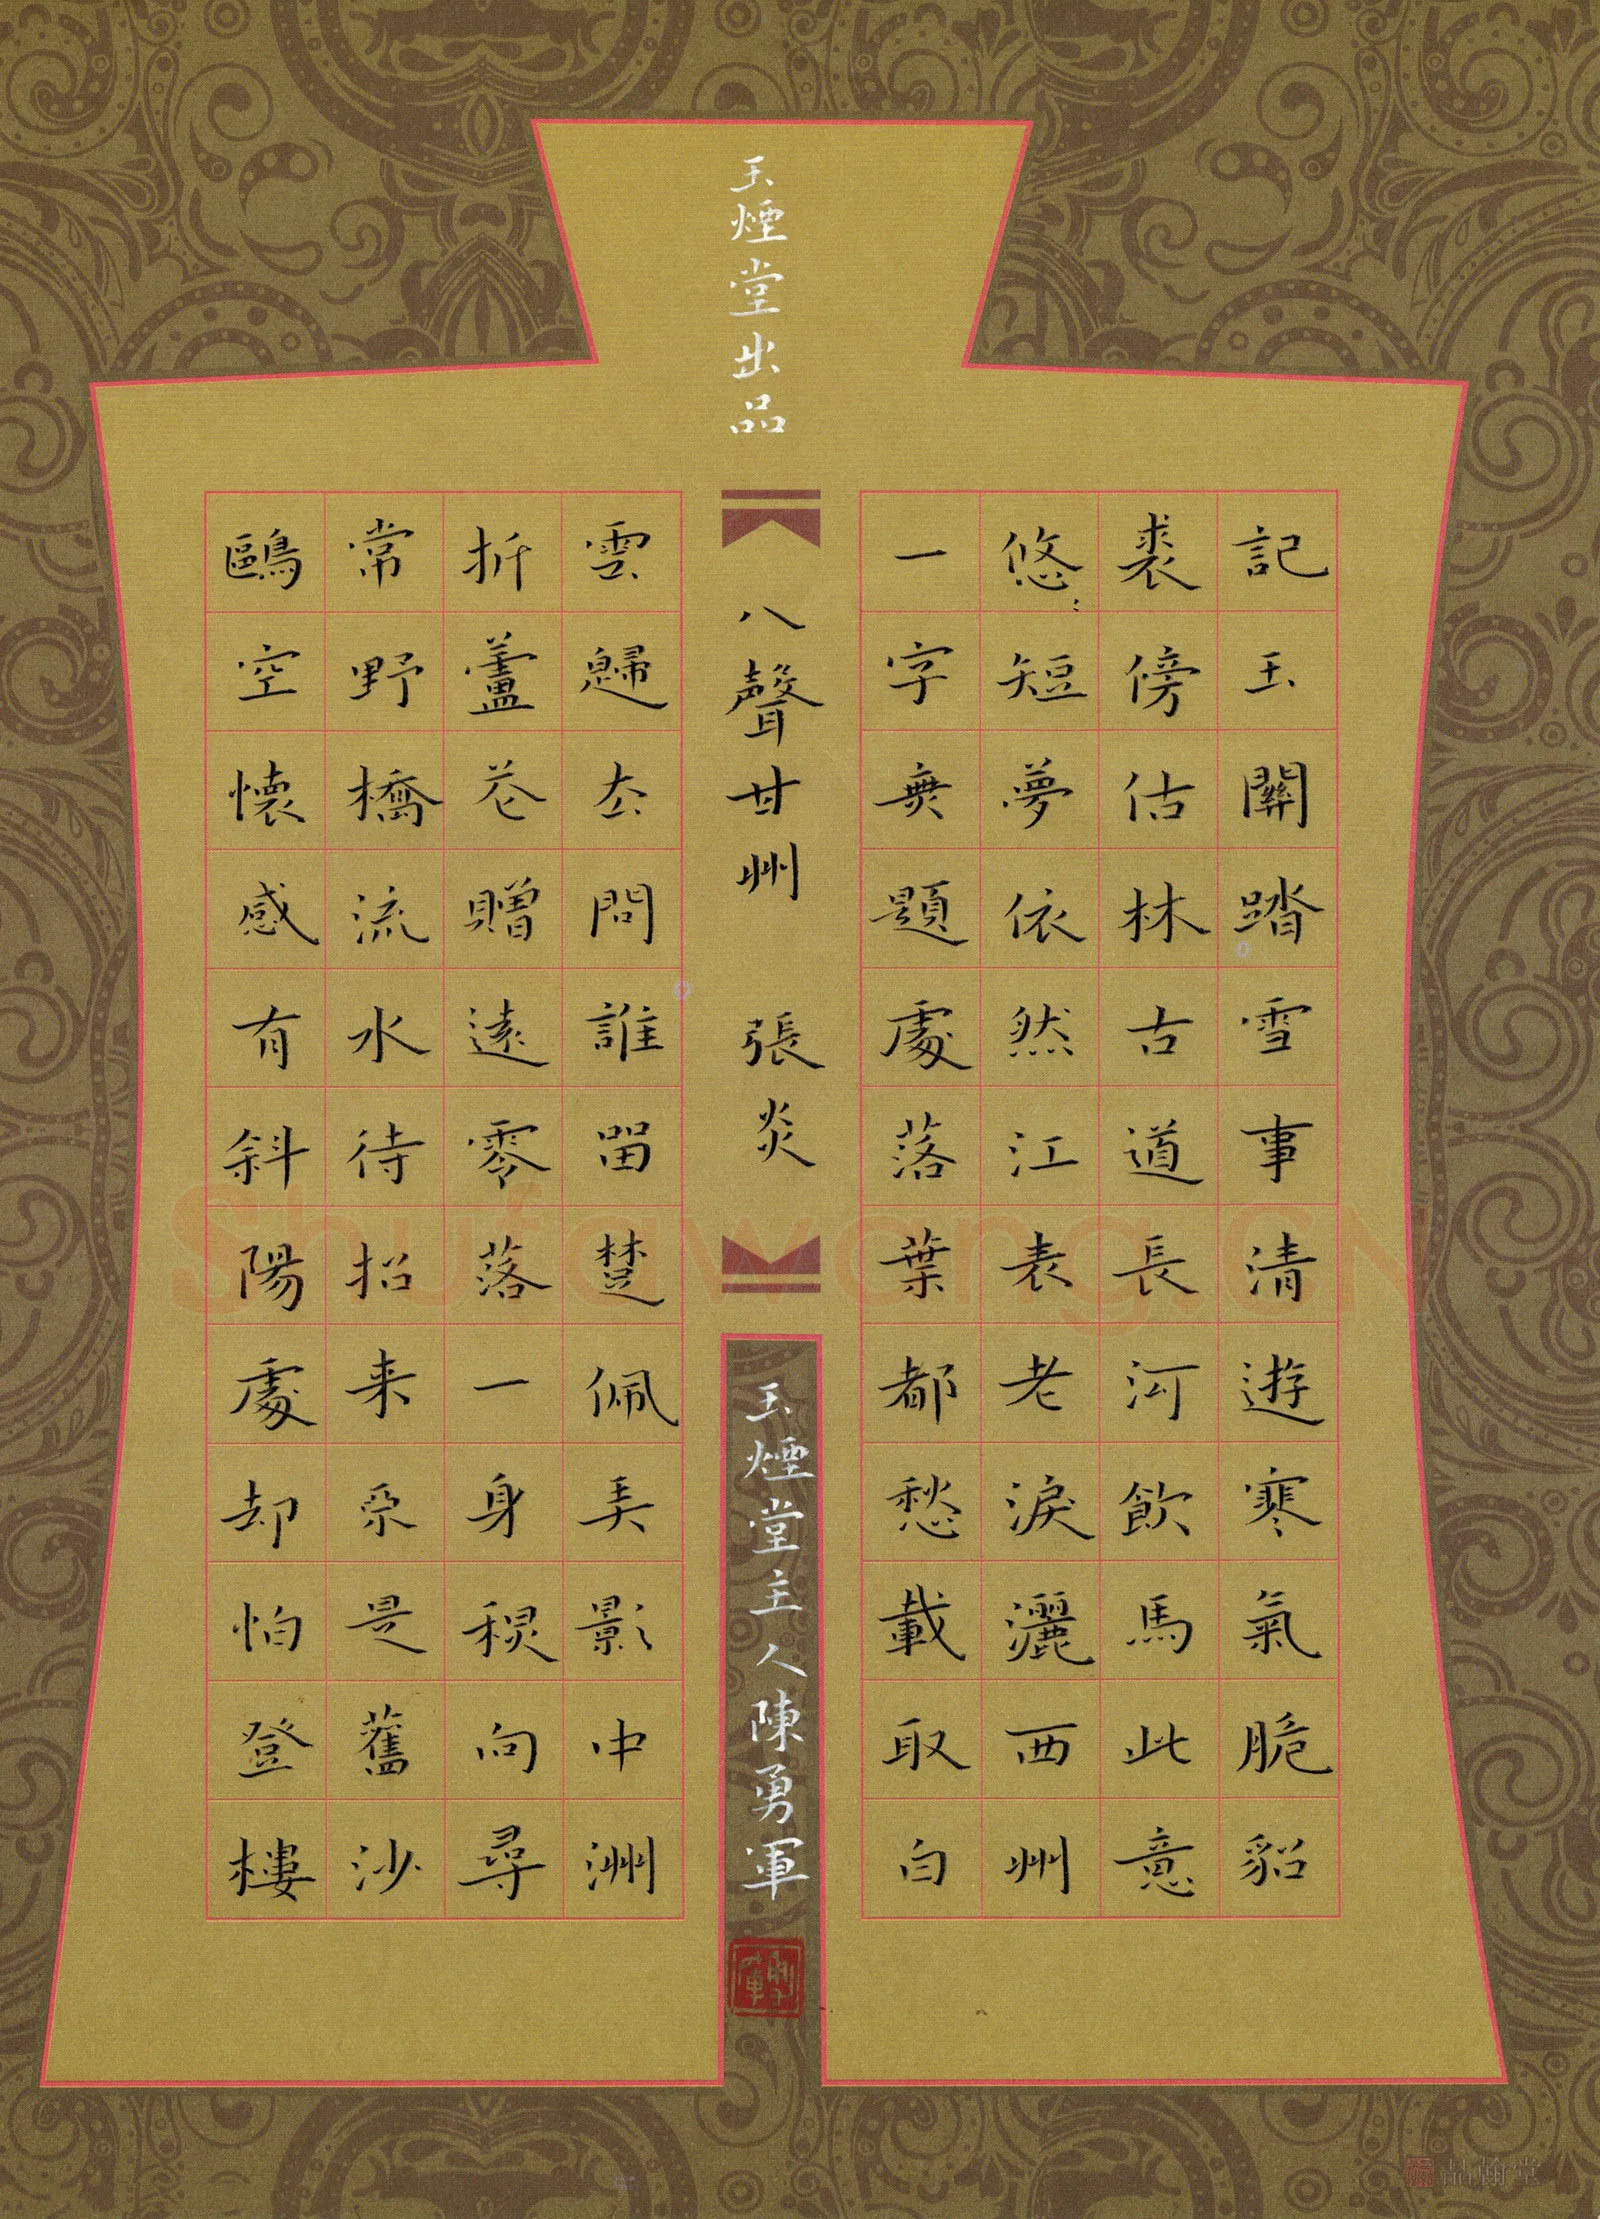 玉煙堂出品
記玉關踏雪事清遊寒氣脆貂
裘傍估林古道長河飲馬此意
悠:短夢依然江表老淚灑西州
一字無題處落葉都愁載取白
八聲甘州 張炎
玉煙堂主人陳勇軍
雲歸去問誰留楚佩弄影中洲
折蘆花贈遠零落一身秋向尋
常野橋流水待招来不是舊沙
鷗空懷感有斜陽處却怕登樓
Shufawang.CN
品翰堂